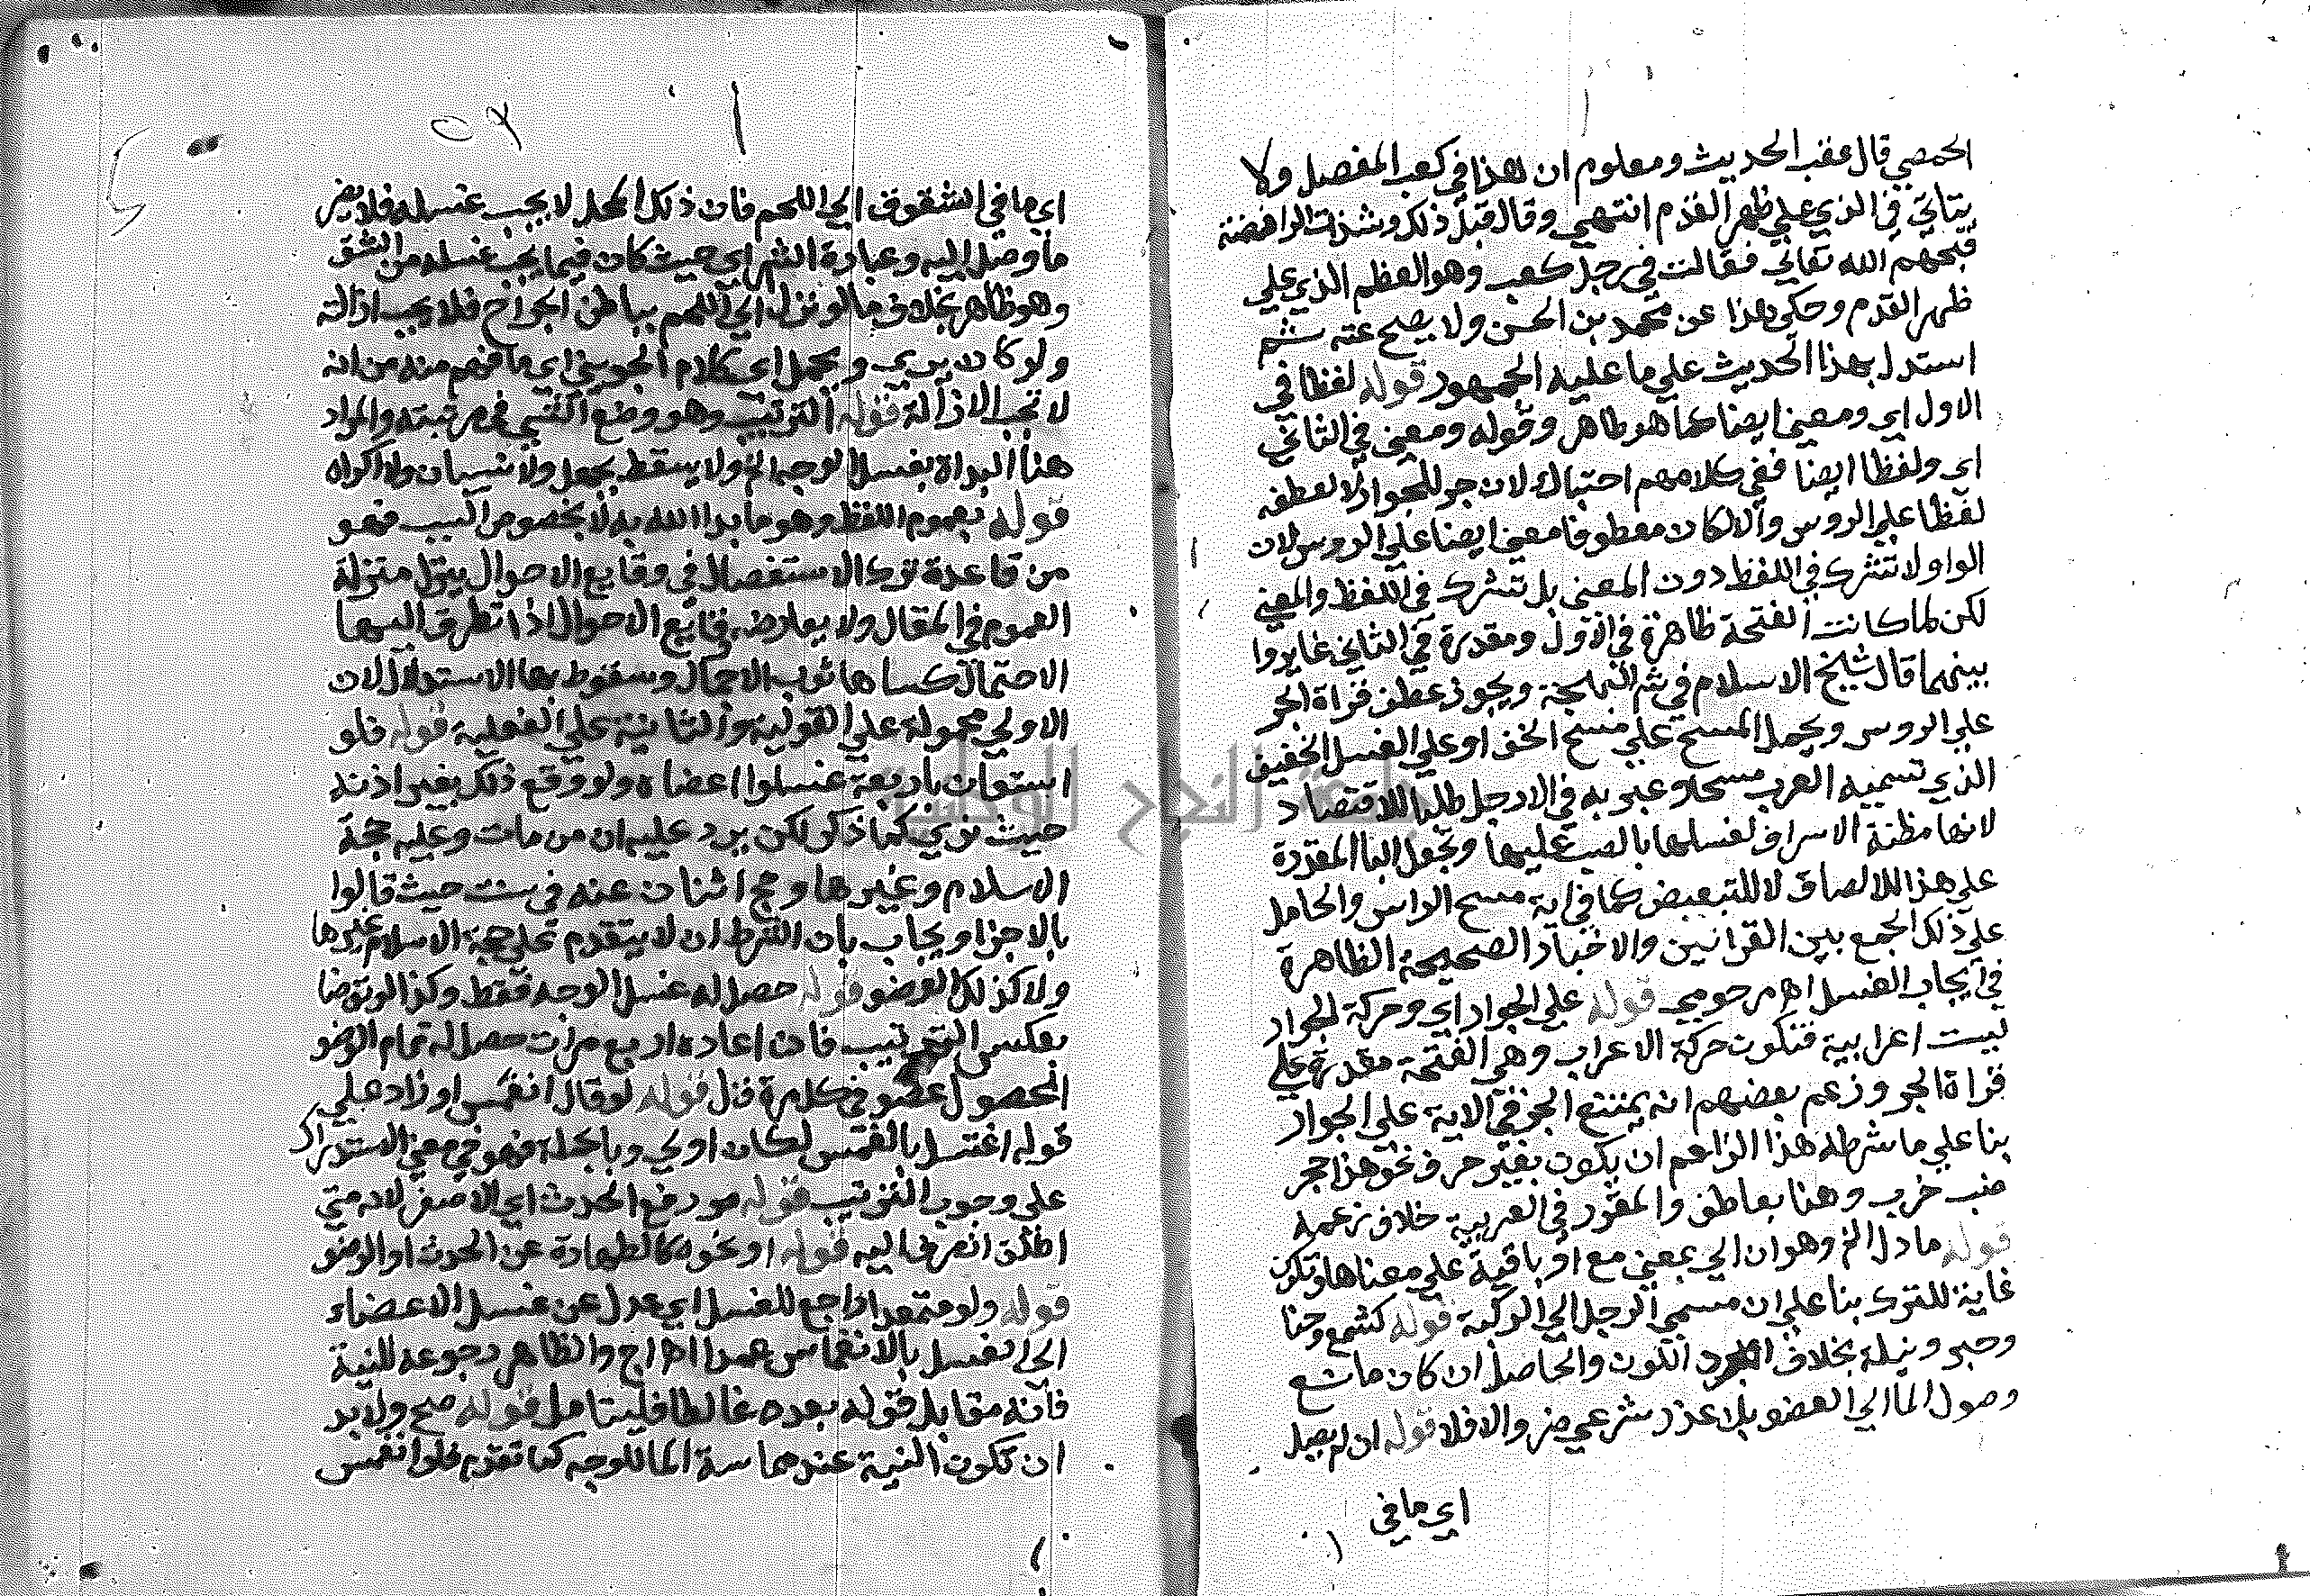 الحمصي قال عقب الحديث ومعلوم ان هذا في كعب المفصل ولا
يتاتي في الذي علي ظهر القدم انتهي وقال قبل ذلك وشذت الرافضة
قبحهم الله تعالي فقالت في كل رجل كعب وهو العظم الذي علي
ظهر القدم وحكي هذا عن محمد بن الحسن ولا يصح عنه ثم
استدل بهذا الحديث علي ما عليه الجمهور قوله لفظا في
الاول اي ومعني ايضا كما هو ظاهر وقوله ومعني في الثاني
اي ولفظا ايضا ففي كلامهم احتباك لان جر للجوار لا لعطفه
لفظا علي الروس والا لكان معطوفا معني ايضا علي الروس لان
الواو لا تشرك في اللفظ دون المعني بل تشرك في اللفظ والمعني
لكن لما كانت الفتحة ظاهرة في الاول ومقدرة في الثاني غايروا
بينهما قال شيخ الاسلام في شر البهجة ويجوز عطف قراة الجر
علي الروس ويحمل المسح علي مسح الخف او علي الغسل الخفيف
الذي تسميه العرب مسحا وعبر به في الارجل طلبا للاقتصاد
لانها مظنة الاسراف لغسلها بالصب عليها وتجعل البا المقدرة
علي هذا للالصاق لا للتبعيض كما في اية مسح الراس والحامل
علي ذلك الجمع بين القرانين والاخبار الصحيحة الظاهرة
في ايجاب الغسل اهـ مرحومي قوله علي الجوار اي وحركة الجوار
ليست اعرابية فتكون حركة الاعراب وهي الفتحة مقدرة علي
قراة الجر وزعم بعضهم انه يمتنع الجر في الاية علي الجوار
بنا علي ما شرطه هذا الزاعم ان يكون بغير حرف نحو هذا جحر
ضب خرب وهنا بعاطف والمقرر في العربية خلاف زعمه
قوله ما دل الخ وهو ان الي بمعني مع او باقية علي معناها وتكون
غاية للترك بنا علي ان مسمي الرجل الي الركبة قوله كشمع وحنا
وحبر ونيلة بخلاف اللون والحاصل ان كان مانع
وصول الما الي العضو بلا عذر شرعي ضر والا فلا قوله ان لم يصل
اي ما في
اي ما في الشقوق الي اللحم فان ذلك المحل لا يجب غسله فلا يضر
ما وصل اليه وعبارة الشر اي حيث كان فيما يجب غسله من الشق
وهو ظاهر بخلاف ما لو نزل الي اللحم بباطن الجراح فلا يجب ازالته
ولو كان يري ويحمل اي كلام الجويني اي ما فهم منه من انه
لا تجب الازالة قوله الترتيب وهو وضع الشي في مرتبته والمراد
هنا البداة بغسل الوجه الخ ولا يسقط بجهل ولا نسيان ولا اكراه
قوله بعموم اللفظ وهو ما بدا الله به لا بخصوص السبب فهو
من قاعدة ترك الاستفصال في وقايع الاحوال ينزل منزلة
العموم في المقال ولا يعارضه وقايع الاحوال اذا تطرق اليها
الاحتمال كساها ثوب الاجمال وسقوط بها الاستدلال لان
الاولي محمولة علي القولية والثانية علي الفعلية قوله فلو
استعان باربعة غسلوا اعضاه ولو وقع ذلك بغير اذنه
حيث نوي كما ذكر لكن يرد عليه ان من مات وعليه حجة
الاسلام وغيرها وحج اثنان عنه في سنت حيث قالوا
بالاجزا ويجاب بان الشرط ان لا يتقدم علي حجة الاسلام غيرها
ولا كذلك الوضو قوله حصل له غسل الوجه فقط وكذا لو توضا
بعكس الترتيب فان اعاده اربع مرات حصل له تمام الوضو
لحصول عضو في كل مرة قال قوله لو قال انغمس او زاد علي
قوله اغتسل بالغمس لكان اولي وبالجملة فهو في معني الاستدراك
علي وجوب الترتيب قوله رفع الحدث اي الاصغر لانه متي
اطلق انصرف اليه قوله او نحوه كالطهارة عن الحدث او الوضو
قوله ولو متعمدا راجع للغسل اي عدل عن غسل الاعضاء
الي الغسل بالانغماس عمدا اهـ اج والظاهر رجوعه للنية
فانه مقابل قوله بعده غالطا فليتامل قوله صح ولا بد
ان تكون النية عند مماسة الما للوجه كما تقدم فلو انغمس